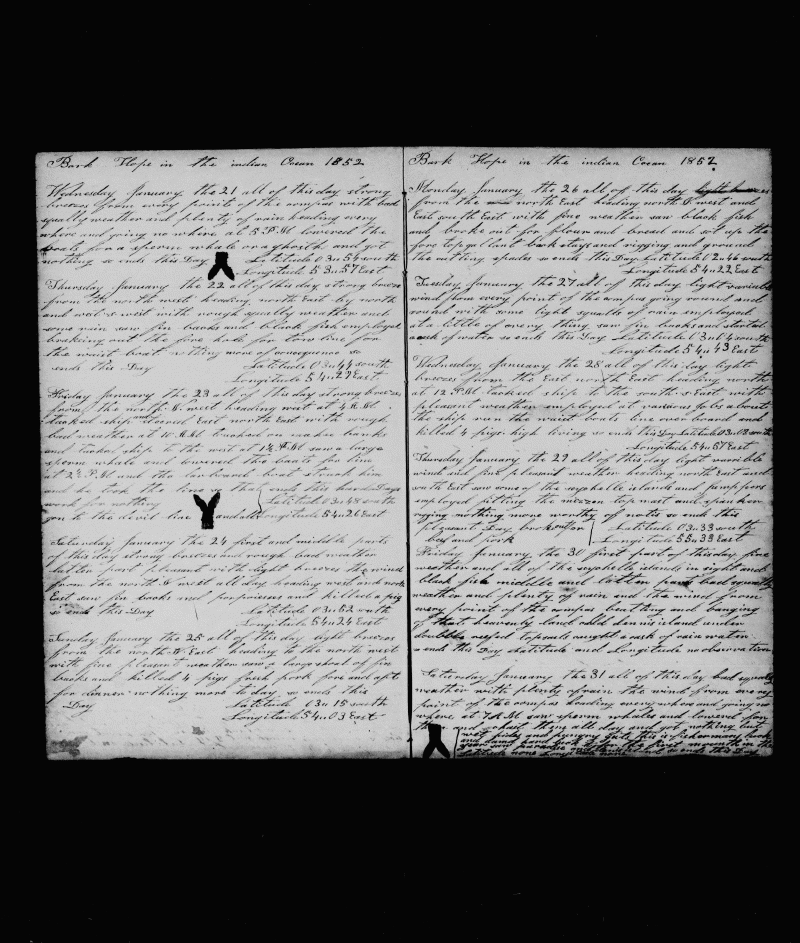 Bark Hope in the indian Ocean 1852
Wednesday January the 21 all of this day strong
breezes from every point of the compas with bad
squally weather and plenty of rain heading every
where and going no where at 5 P.M lowered the
boats for a sperm whale or a ghost and got
nothing so ends this Day Latitude 03 " 54 south
Longitude 53 " 57 East
Thursday January the 22 all of this day strong breeze
from the north west heading north East by north
and west s west with rough squally weather and
some rain saw fin backs and black fish employed
braking out the fore hole for tow line for
the waist boat nothing more of consequence so
ends this Day Latitude 03 " 44 south
Longitude 54 " 27 East
Friday January the 23 all of this day strong breezes
from the north N west heading west at 4 A.M
tacked ship steered East north East with rough
bad weather at 10 A.M
and tacked ship to the west at saw a large
sperm whale and lowered the boats for him
at P.M and the larboard boat struck him
and he took the line so that ends this hard Days
work for nothing Latitude 03 " 48 south
gon to the devil line and all Longitude 54 " 26 East
Saturday January the 24 first and middle parts
of this day strong breezes and rough bad weather
latter part pleasant with light breezes the wind
from the north N west all day heading west and north
East saw fin backs and porpoises and killed a pig
so ends this Day Latitude 03 " 52 south
Longitude 54 " 24 East
Sunday January the 25 all of this day light breezes
from the north N. East heading to the north west
with fine pleasant weather saw a large shoal of fin
backs and killed 4 pigs fresh pork fore and aft
for dinner nothing more to day so ends this
Day Latitude 03 " 15 south
Longitude 54 " 03 East
Bark Hope in the indian Ocean 1852
Monday January the 26 all of this day
from the north East heading north N west and
East south East with fine weather saw black fish
and broke out for flour and bread and sot up the
fore topgallant back stays and rigging and ground
the cutting spades so ends this Day Latitude 02 " 46 south
Longitude 54 " 22 East
Tuesday January the 27 all of this day light variable
wind from every point of the compas going round and
round with some light squalls of rain employed
at a little of every thing saw fin backs and started
a cask of water so ends this Day Latitude 03 " 04 south
Longitude 54 " 43 East
Wednesday January the 28 all of this day light
breezes from the East north East heading north
at 12 P.M tacked ship to the south s East with
pleasant weather employed at various jobs about
the ship run the waist boats line overboard and
killed 4 pigs high living so ends this Day Latitude 03 " 03 south
Longitude 54 " 57 East
Thursday January the 29 all of this day light variable
wind and fine pleasant weather heading north East and
south East saw some of the seychelle islands and jumppers
employed fitting the mizzen topmast and spanker
rigging nothing more worthy of notis so ends this
pleasant Day brok out for Latitude 03 " 33 south
beef and pork Longitude 55 " 39 East
Friday January the 30 first part of this day fine
weather and all of the seychelle islands in sight and
black fish middle and latter parts bad squally
weather and plenty of rain and the wind from
every point of the compas beatting and banging
of that heavenly land cald dennis island under
doubble reefed topsails caught a cask of rain water
ends this Day Latitude and Longitude no observation
Saturday January the 31 all of this day bad squally
weather with plenty of rain the wind from every
point of the compas heading every where and going no
where at 7 A.M saw sperm whales and lowered for
them and chaist them all day and got nothing but
wet fisky and hungry guts this is fishermans luck
and dam hard